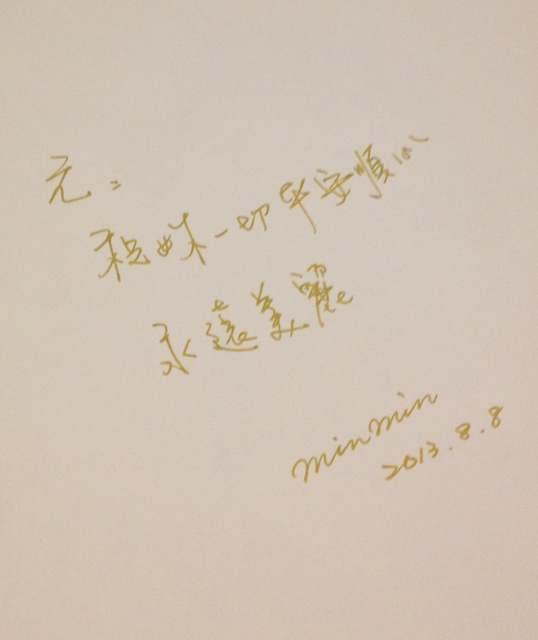 元:
祝妳一切平安順心
永遠美麗
minmin
2013.8.8